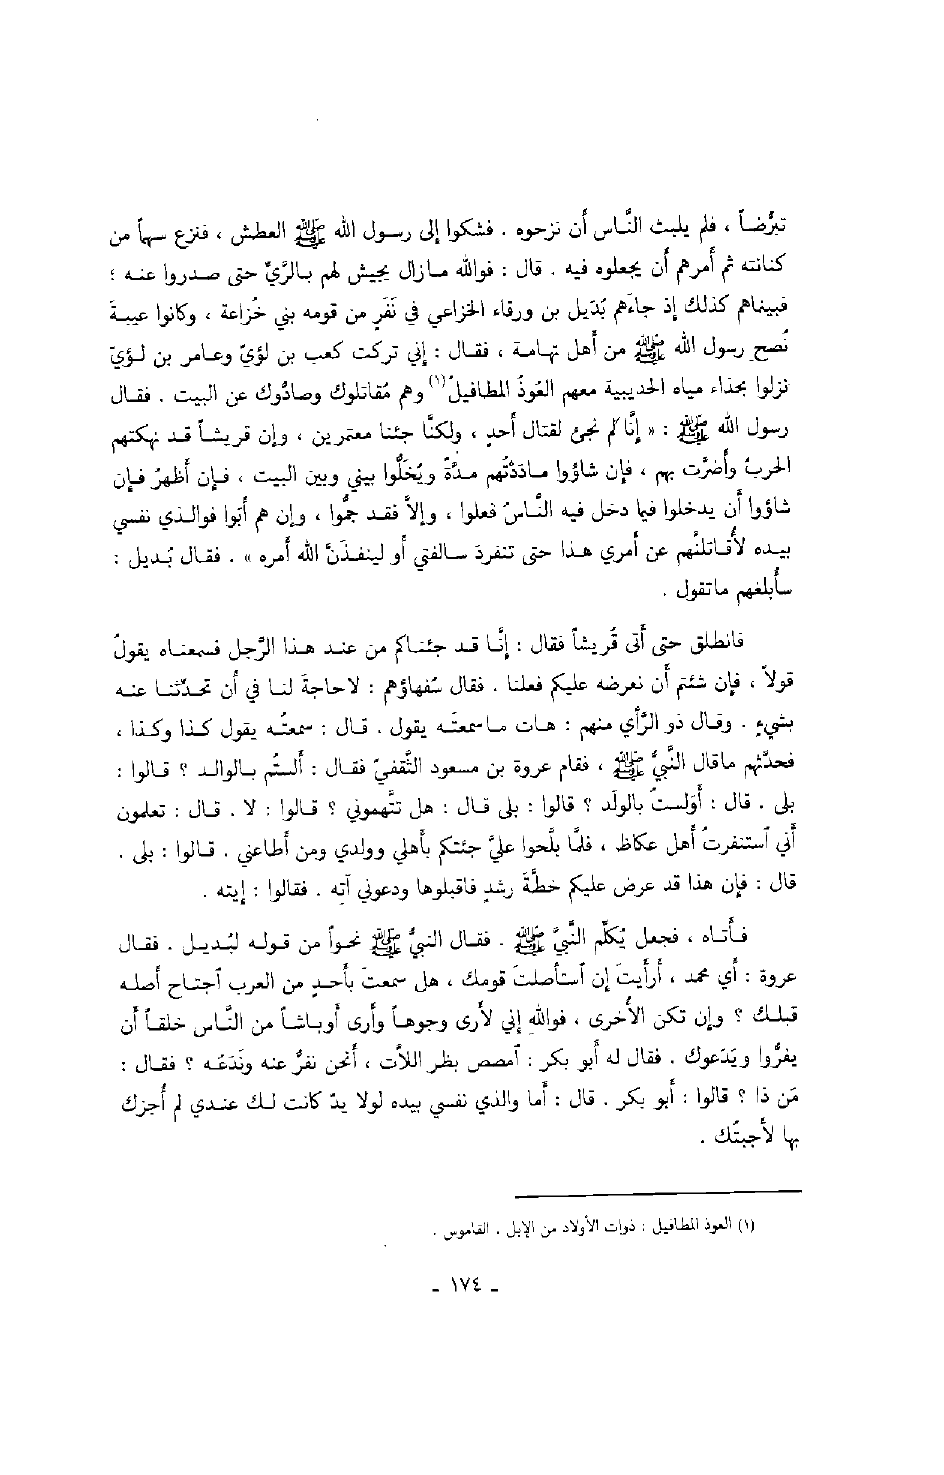 تبرُّضاً ، فلم يلبث النَّاس أن نزحوه . فشكوا إلى رسول الله ﷺ العطش ، فنزع سهماً من
كنانته ثم أمرهم أن يجعلوه فيه . قال : فوالله مازال يجيش لهم بالرَّيِّ حتى صدروا عنه ؛
فبيناهم كذلك إذ جاءَهم بُدَيل بن ورقاء الخزاعي في نَفَرٍ من قومه بني خُزاعة ، وكانوا عيبةَ
نُصح رسول الله ﷺ من أهل تهامة ، فقال : إني تركت كعب بن لؤيّ وعامر بن لؤيّ
نزلوا بحذاء مياه الحديبية معهم العُوذُ المطافيلُ(١) وهم مُقاتلوك وصادُّوك عن البيت . فقال
رسول الله ﷺ : « إنَّا لم نجئ لقتال أحدٍ ، ولكنَّا جئنا معتمرين ، وإن قريشاً قد نهكتهم
الحربُ وأضرَّت بهم ، فإن شاؤوا مادَدْتُهم مدَّةً ويُخَلُّوا بيني وبين البيت ، فإن أظهرْ فإن
شاؤوا أن يدخلوا فيما دخل فيه النَّاسُ فعلوا ، وإلاَّ فقد جمُّوا ، وإن هم أبَوا فوالذي نفسي
بيده لأُقاتلنَّهم عن أمري هذا حتى تنفردَ سالفتي أو لينفذَنَّ الله أمره » . فقال بُديل :
سأبلغهم ماتقول .
فانطلق حتى أتى قُريشاً فقال : إنَّا قد جئناكم من عند هذا الرَّجل فسمعناه يقولُ
قولاً ، فإن شئتم أن نعرضه عليكم فعلنا . فقال سُفهاؤهم : لاحاجةَ لنا في أن تحدِّثنا عنه
بشيءٍ . وقال ذو الرَّأي منهم : هات ماسمعتَه يقول . قال : سمعتُه يقول كذا وكذا ،
فحدَّثهم ماقال النَّبيُّ ﷺ ، فقام عروة بن مسعود الثَّقفيّ فقال : ألستُم بالوالد ؟ قالوا :
بلى . قال : أوَلستُ بالولَد ؟ قالوا : بلى قال : هل تتَّهموني ؟ قالوا : لا . قال : تعلمون
أني ٱستنفرتُ أهل عكاظ ، فلمَّا بلَّحوا عليَّ جئتكم بأهلي وولدي ومن أطاعني . قالوا : بلى .
قال : فإن هذا قد عرض عليكم خطَّةَ رشدٍ فاقبلوها ودعوني آته . فقالوا : إيته .
فأتاه ، فجعل يُكلِّم النَّبيَّ ﷺ . فقال النبيُّ ﷺ نحواً من قوله لبُديل . فقال
عروة : أي محمد ، أرأيتَ إن ٱستأصلتَ قومك ، هل سمعتَ بأحدٍ من العرب ٱجتاح أصله
قبلك ؟ وإن تكن الأُخرى ، فوالله إني لأرى وجوهاً وأرى أوباشاً من النَّاس خلقاً أن
يفرُّوا ويَدَعوك . فقال له أبو بكر : ٱمصص بظر اللات ، أنحن نفرُّ عنه ونَدَعَه ؟ فقال :
مَن ذا ؟ قالوا : أبو بكر . قال : أما والذي نفسي بيده لولا يدٌ كانت لك عندي لم أُجزك
بها لأجبتُك .
(١) العوذ المطافيل : ذوات الأولاد من الإبل . القاموس .
- ١٧٤ -